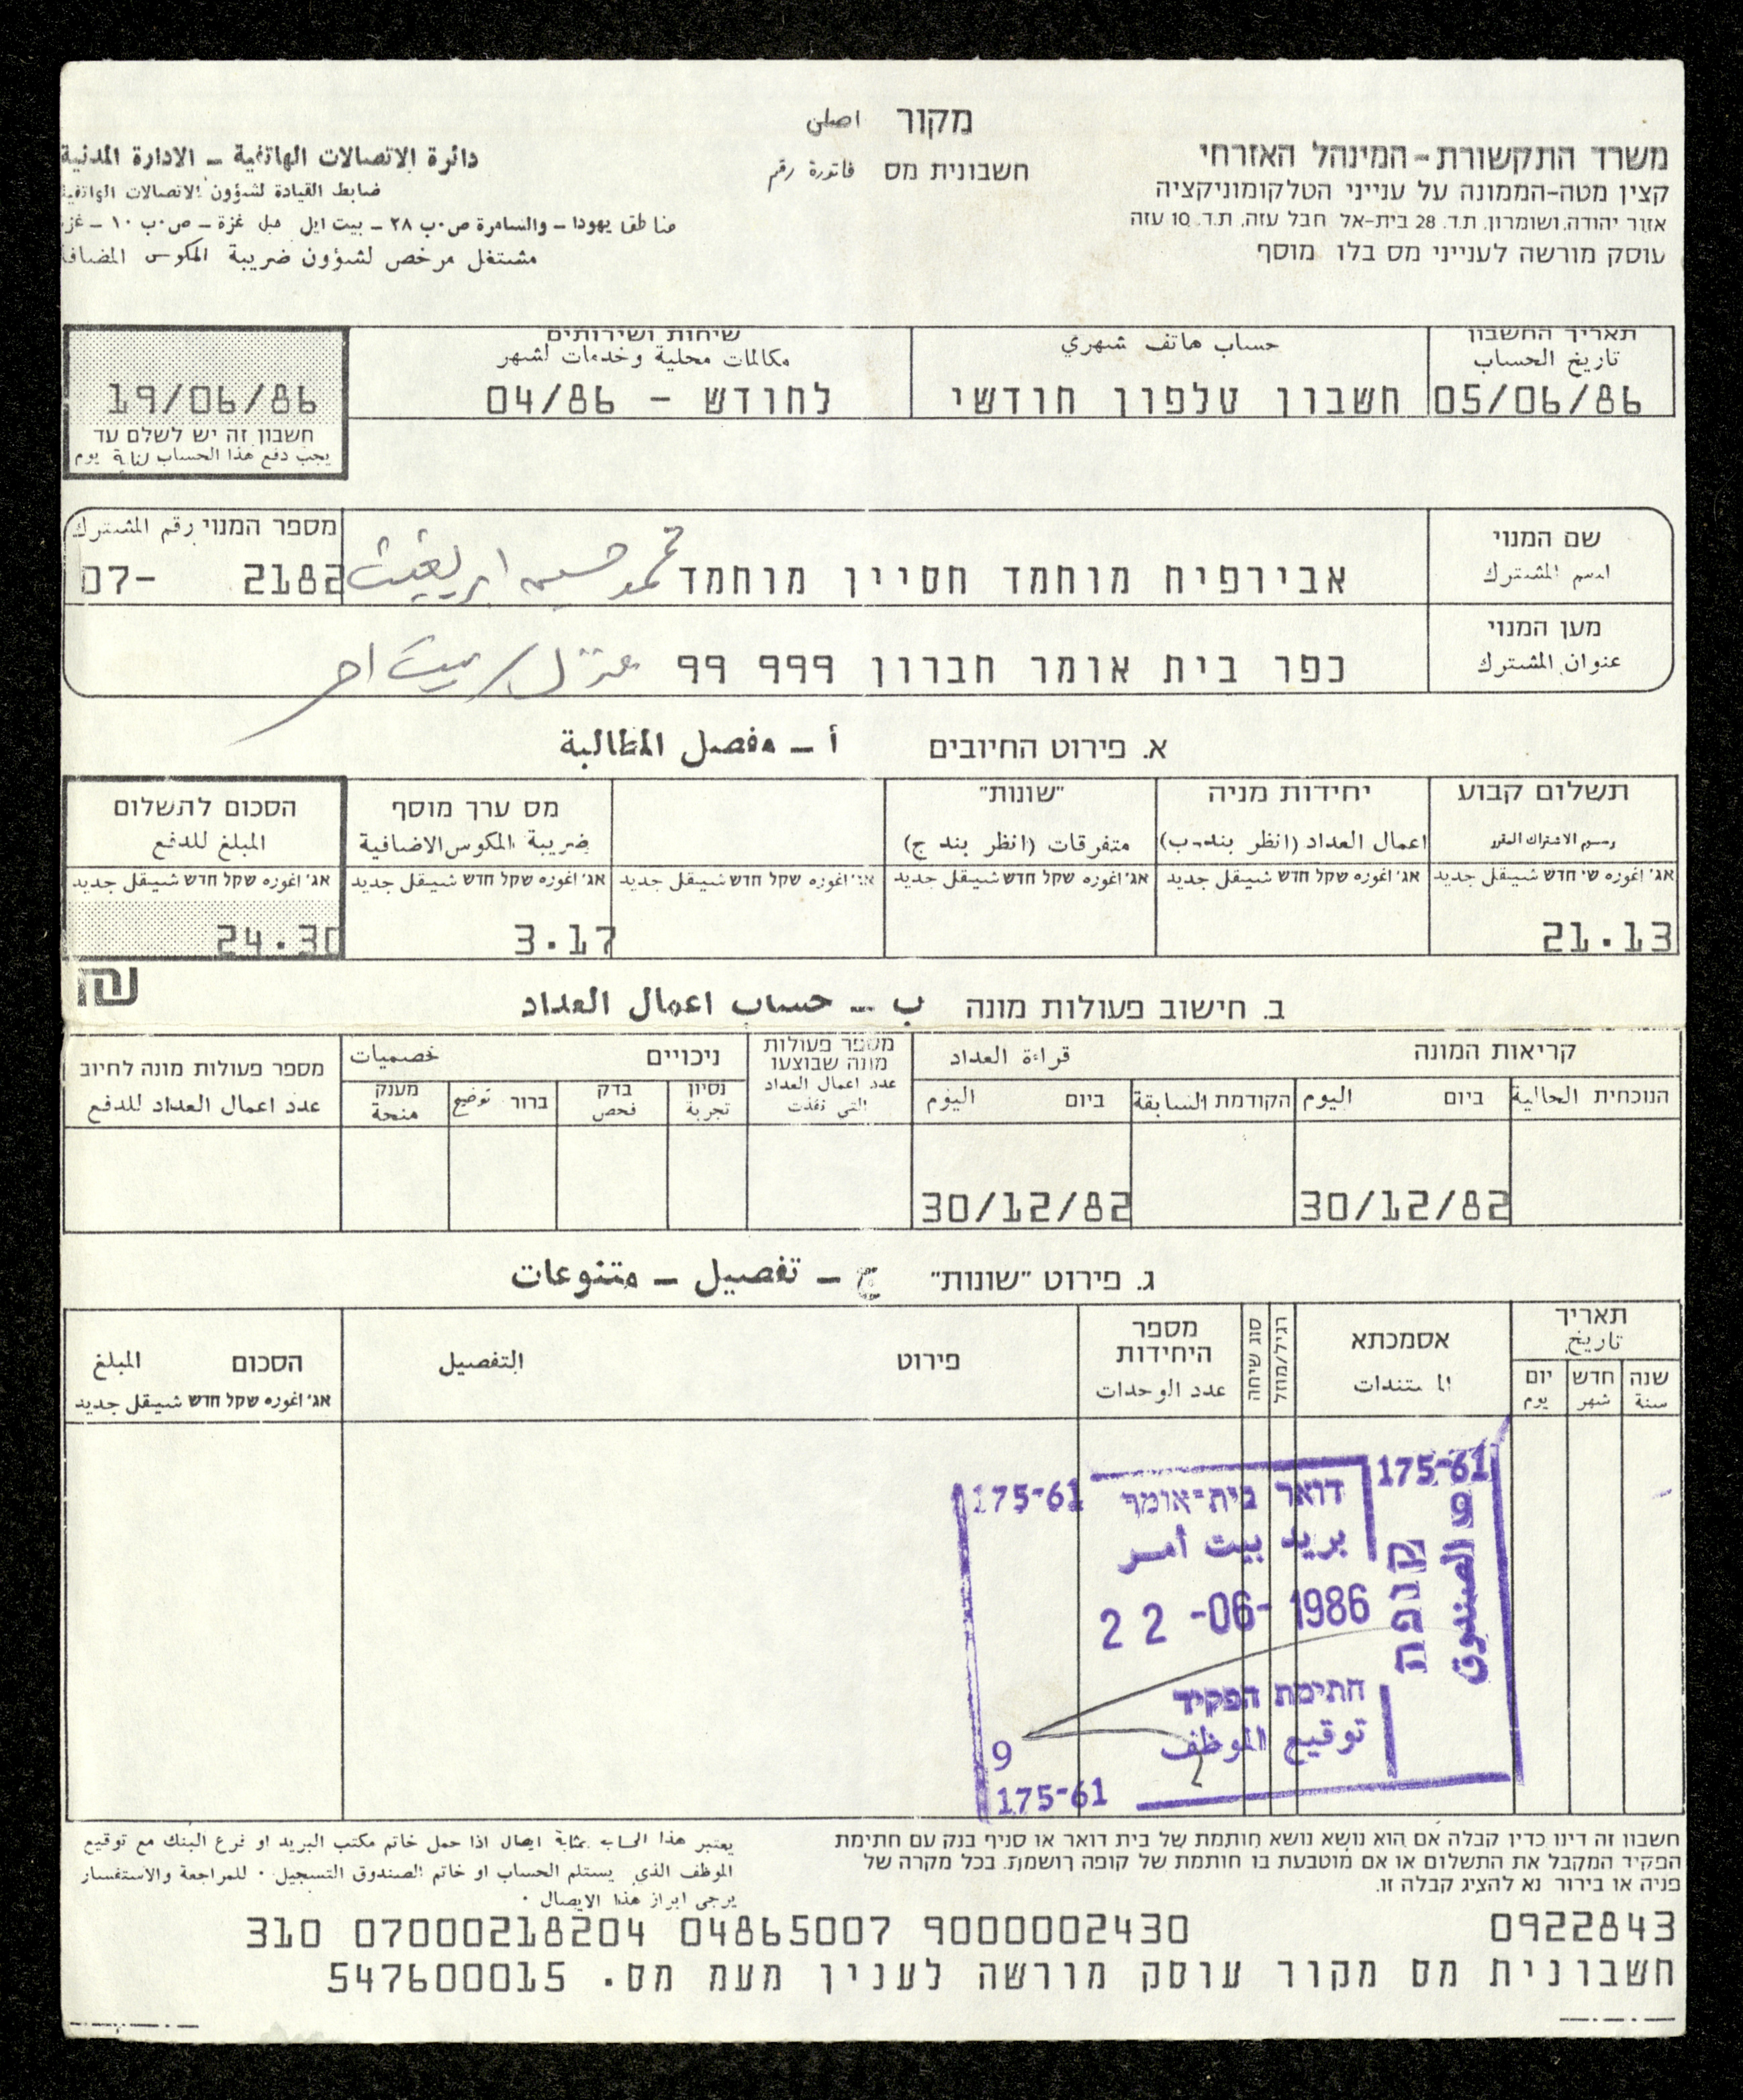 מקור اصلي
משרד התקשורת - המינהל האזרחי
דائرة الاتصالات الهاتفية – الادارة المدنية
קצין מטה-הממונה על ענייני הטלקומוניקציה
ضابط القيادة لشؤون الاتصالات الهاتفية
חשבונית מס فاتورة رقم
אזור יהודה ושומרון, ת.ד. 28 בית-אל חבל עזה, ת.ד. 10 עזה
مناطق يهودا – والسامرة ص٠ب ٢٨ – بيت ايل حبل غزة – ص٠ب ١٠ – غزة
עוסק מורשה לענייני מס בלו מוסף
مشتغل مرخص لشؤون ضريبة المكوس المضافة
תאריך החשבון
تاريخ الحساب
05/06/86
حساب هاتف شهري
חשבון טלפון חודשי
שיחות ושירותים
مكالمات محلية وخدمات لشهر
לחודש - 04/86
19/06/86
חשבון זה יש לשלם עד
يجب دفع هذا الحساب لغاية يوم
שם המנוי
اسم المشترك
אבירפיח מוחמד חסיין מוחמד
מספר המנוי رقم المشترك
07- 2182
מען המנוי
عنوان المشترك
כפר בית אומר חברון 999 99
א. פירוט החיובים أ – مفصل المطالبة
תשלום קבוע
رسوم الاشتراك المقرر
אג' اغوره שי חדש شيقل جديد
21.13
יחידות מניה
اعمال العداد (انظر بند-ب)
אג' اغوره שקל חדש شيقل جديد
"שונות"
متفرقات (انظر بند ج)
אג' اغوره שקל חדש شيقل جديد
אג' اغوره שקל חדש شيقل جديد
מס ערך מוסף
ضريبة المكوس الاضافية
אג' اغوره שקל חדש شيقل جديد
3.17
הסכום לתשלום
المبلغ للدفع
אג' اغوره שקל חדש شيقل جديد
24.30
₪
ב. חישוב פעולות מונה ب – حساب اعمال العداد
קריאות המונה قراءة العداد
הנוכחית الحالية
ביום اليوم
30/12/82
הקודמת السابقة
ביום اليوم
30/12/82
מספר פעולות
מונה שבוצעו
عدد اعمال العداد
التي نفذت
ניכויים خصميات
נסיון
تجربة
בדק
فحص
ברור توضيح
מענק
منحة
מספר פעולות מונה לחיוב
عدد اعمال العداد للدفع
ג. פירוט "שונות" ج – تفصيل – متنوعات
תאריך
تاريخ
שנה
سنة
חדש
شهر
יום
يوم
אסמכתא
المستندات
רגיל/מוזל
סוג שיחה
מספר
היחידות
عدد الوحدات
פירוט التفصيل
הסכום المبلغ
אג' اغوره שקל חדש شيقل جديد
175-61
175-61
דואר בית-אומר
بريد بيت أمر
22 -06- 1986
קופה
الصندوق
חתימת הפקיד
توقيع الموظف
9
175-61
חשבון זה דינו כדין קבלה אם הוא נושא נושא חותמת של בית דואר או סניף בנק עם חתימת
הפקיד המקבל את התשלום או אם מוטבעת בו חותמת של קופה רושמת. בכל מקרה של
פניה או בירור נא להציג קבלה זו.
يعتبر هذا الحساب بمثابة ايصال اذا حمل خاتم مكتب البريد او فرع البنك مع توقيع
الموظف الذي يستلم الحساب او خاتم الصندوق التسجيل ٠ للمراجعة والاستفسار
يرجى ابراز هذا الايصال ٠
0922843
310 07000218204 04865007 9000002430
חשבונית מס מקור עוסק מורשה לענין מעמ מס. 547600015